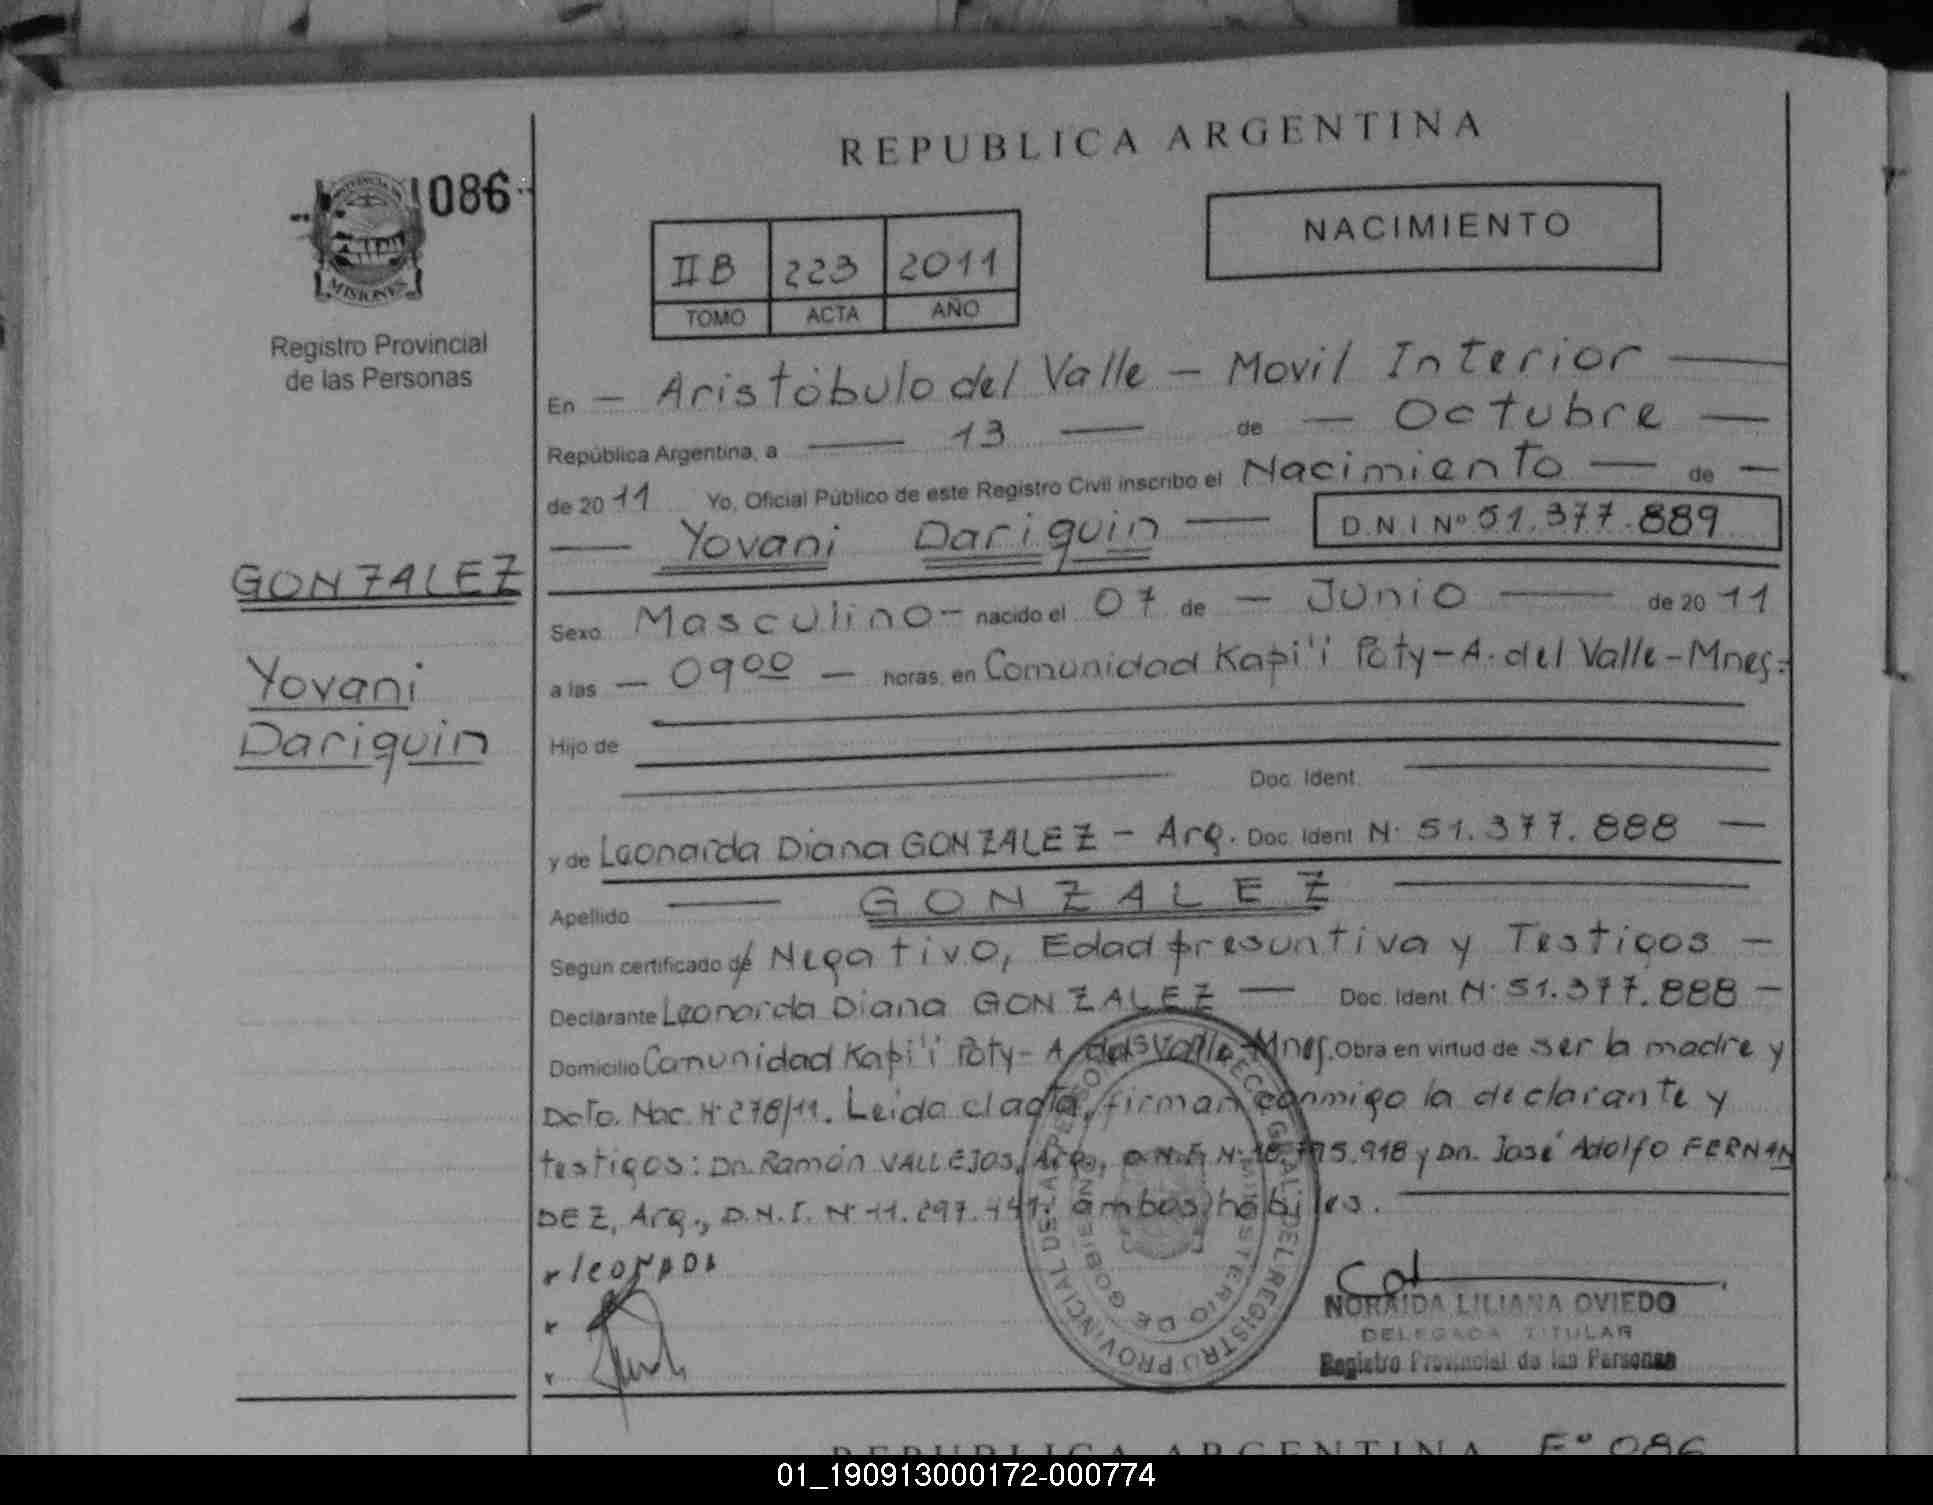 REPUBLICA ARGENTINA
086
NACIMIENTO
II B 223 2011
TOMO ACTA AÑO
MISIONES
Registro Provincial
de las Personas
En — Aristóbulo del Valle — Movil Interior —
República Argentina, a — 13 — de — Octubre —
de 2011 Yo, Oficial Público de este Registro Civil inscribo el Nacimiento — de —
— Yovani Dariquin — D.N.I Nº 51.377.889
GONZALEZ
Yovani
Dariquin
Sexo Masculino - nacido el 07 de — Junio — de 2011
a las — 09 00 — horas, en Comunidad Kapi'i Poty - A. del Valle - Mnes.
Hijo de
Doc. Ident.
y de Leonarda Diana GONZALEZ - Arg. Doc. Ident N· 51.377.888 —
Apellido — GONZALEZ —
Según certificado de Negativo, Edad presuntiva y Testigos —
Declarante Leonarda Diana GONZALEZ — Doc. Ident N· 51.377.888 —
Domicilio Comunidad Kapi'i Poty - A. del Valle - Mnes. Obra en virtud de ser la madre y
Dcto. Nac. N· 278/11. Leida el acta, firman conmigo la declarante y
testigos: Dn. Ramón VALLEJOS, Arg., D.N.I. y Dn. José Adolfo FERNAN
DEZ, Arg., D.N.I. Nº 11.297. ambos hábiles.
NORAIDA LILIANA OVIEDO
DELEGADA TITULAR
Registro Provincial de las Personas
DEL REGISTRO PROVINCIAL DE LAS PERSONAS
MINISTERIO DE GOBIERNO
REPUBLICA ARGENTINA Fº 086
01_190913000172-000774